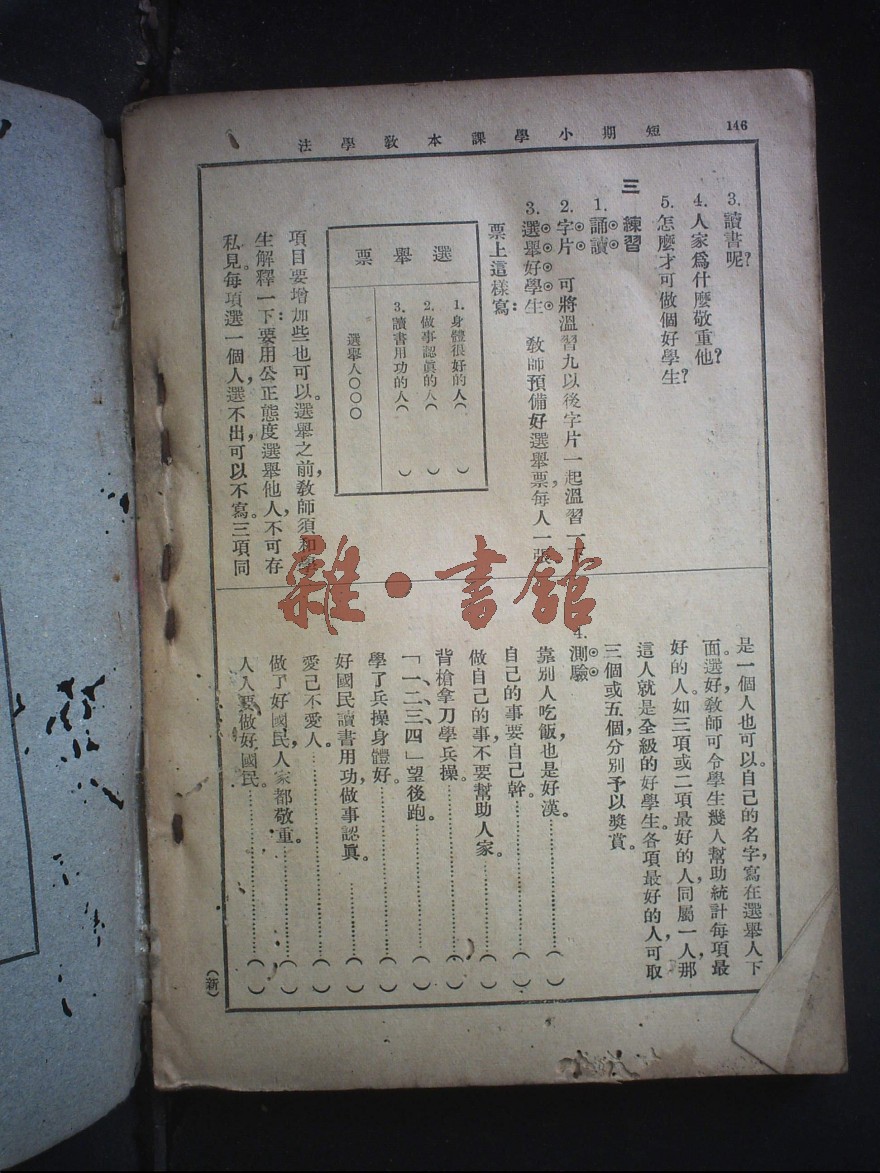 146
短期小學課本教學法
3. 讀書呢?
4. 人家爲什麼敬重他?
5. 怎麼才可做個好學生?
三 練習
1. 誦讀
2. 字片 可將溫習九以後字片一起溫習一下
3. 選舉好學生 教師預備好選舉票,每人一張
票上這樣寫:
選舉票
1. 身體很好的人( )
2. 做事認眞的人( )
3. 讀書用功的人( )
選舉人〇〇〇
項目要增加些也可以。選舉之前,教師須和學
生解釋一下:要用公正態度選舉他人,不可存
私見。每項選一個人,選不出可以不寫。三項同
是一個人也可以。自己的名字,寫在選舉人下
面。選好,教師可令學生幾人幫助統計每項最
好的人。如三項或二項最好的人,同屬一人,那
這人就是全級的好學生。各項最好的人,可取
三個或五個,分別予以獎賞。
4. 測驗
靠別人吃飯,也是好漢。( )
自己的事要自己幹。( )
做自己的事,不要幫助人家。( )
背槍拿刀學兵操。( )
「一、二、三、四」望後跑。( )
學了兵操身體好。( )
好國民,讀書用功做事認眞。( )
愛己不愛人。( )
做了好國民,人家都敬重。( )
人人要做好國民。( )
(新)
雜·書館